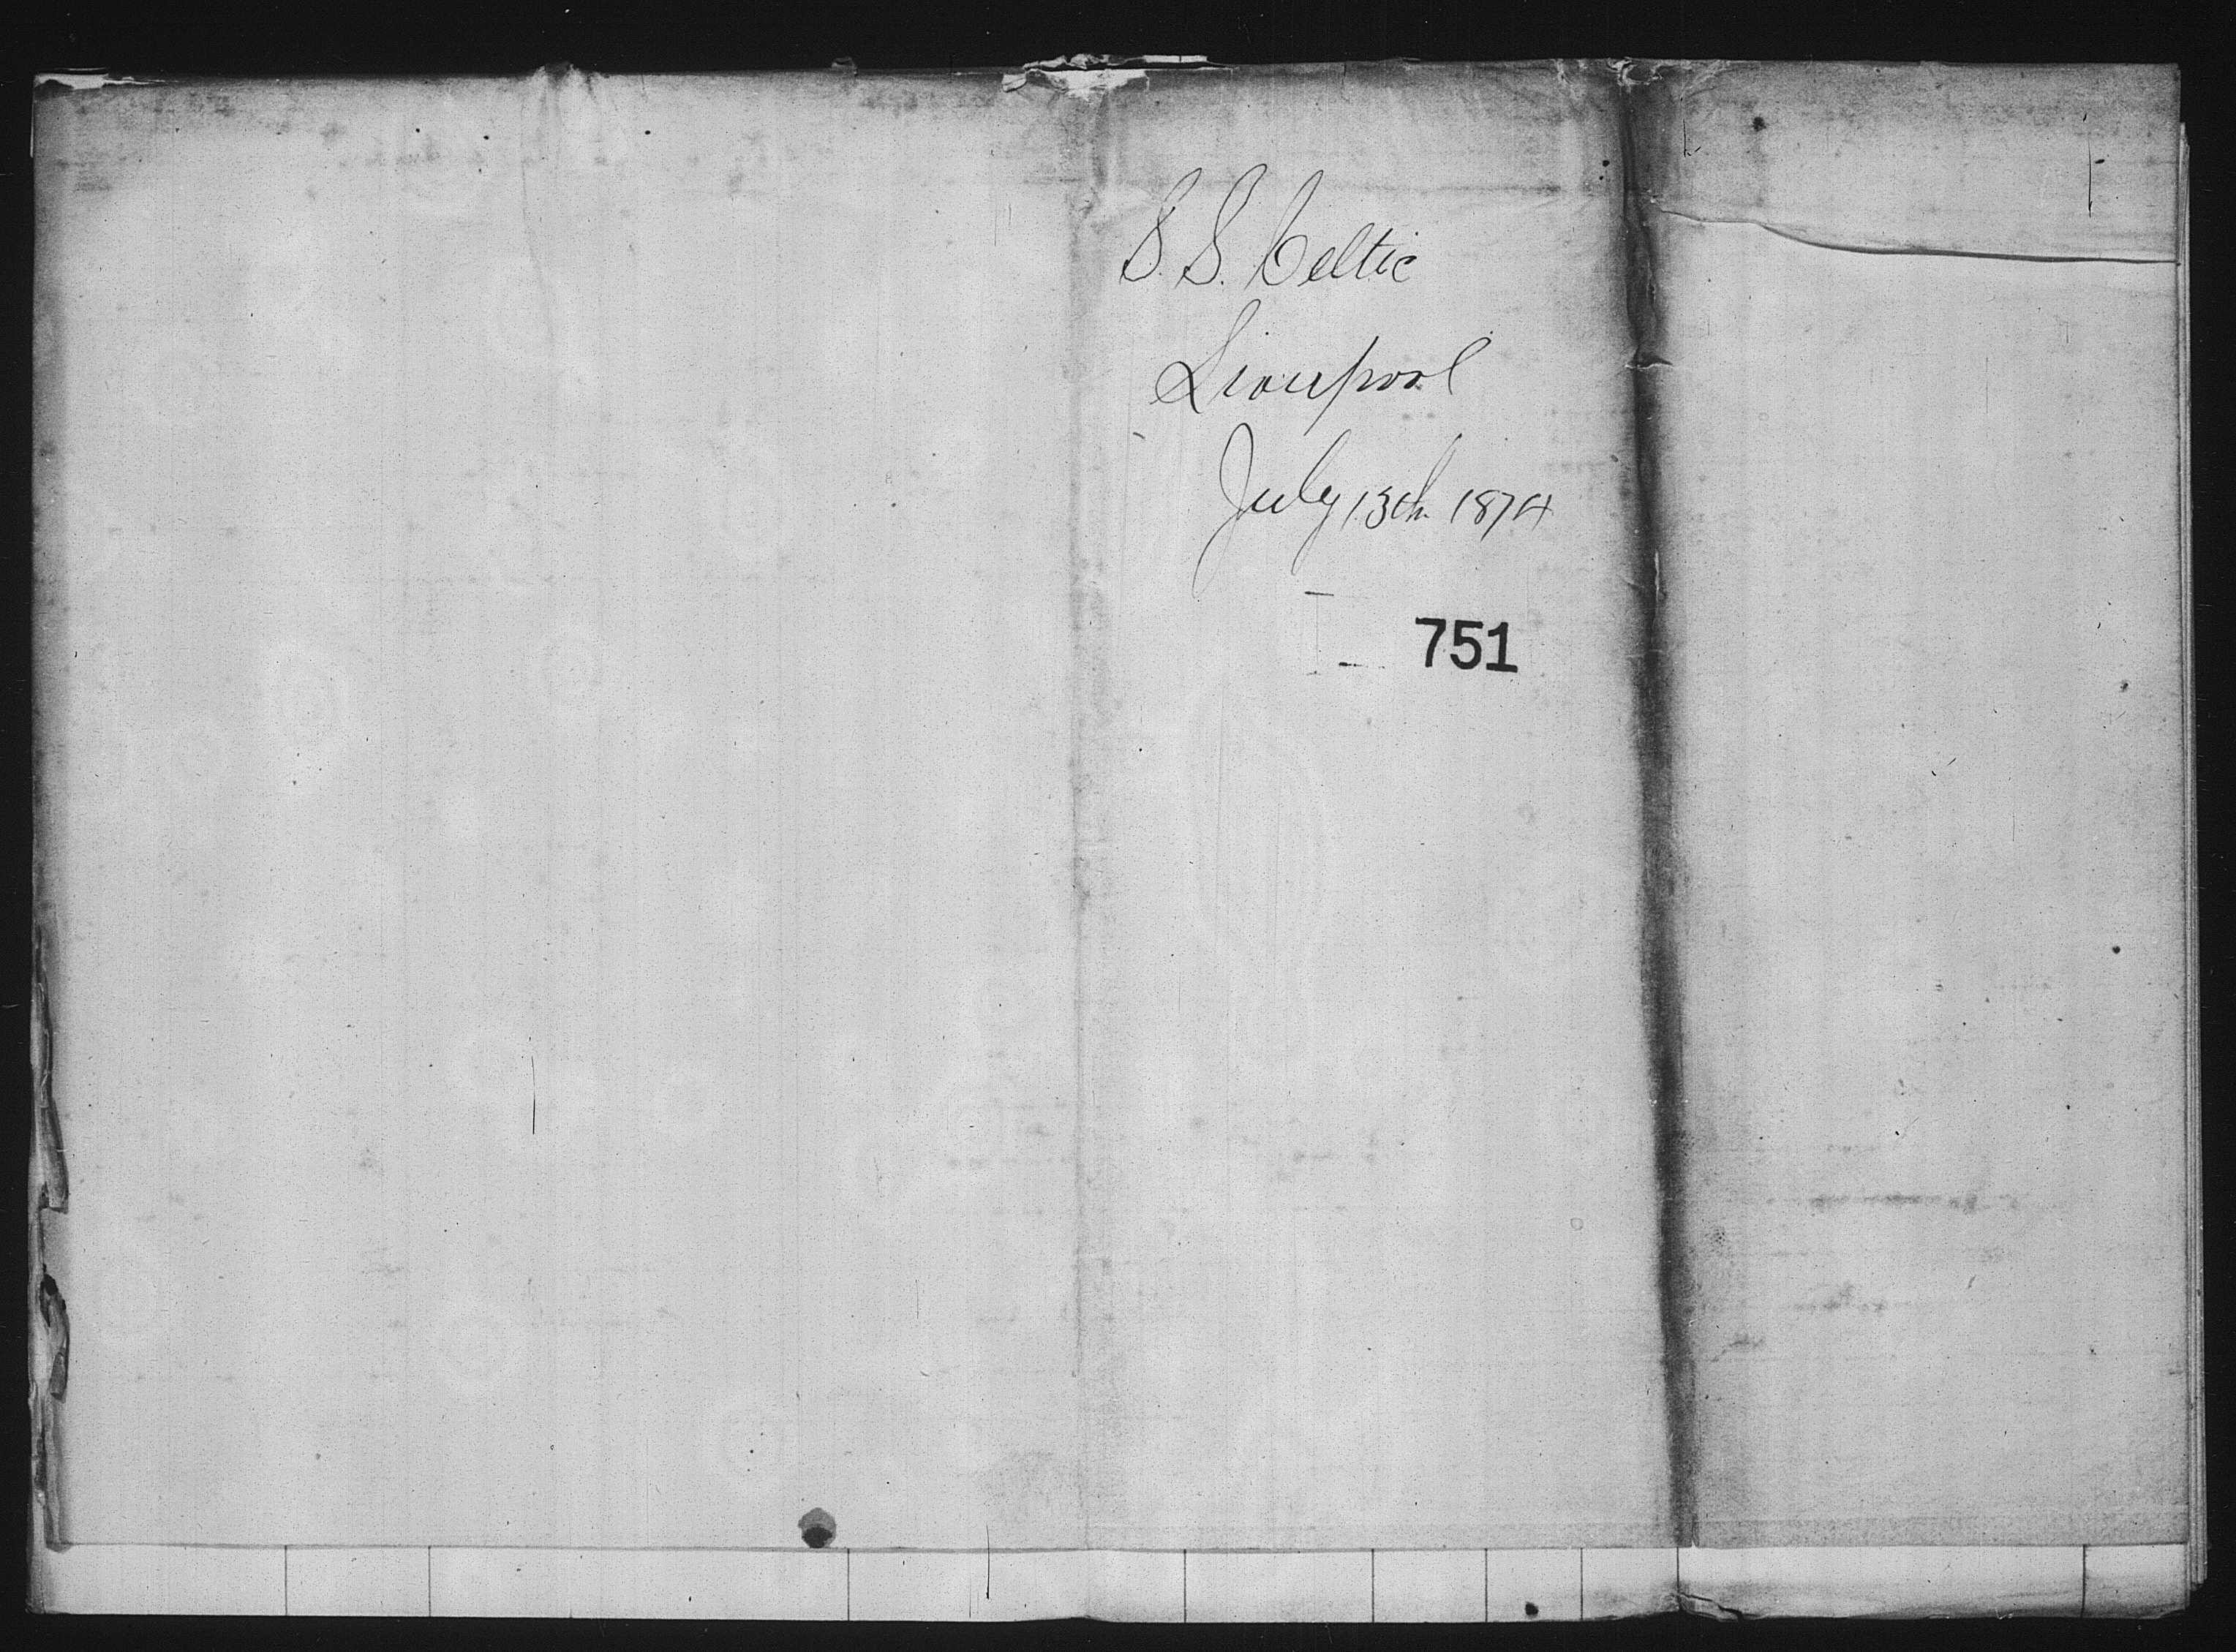 S. S. Celtic
Liverpool
July 13th 1874
751